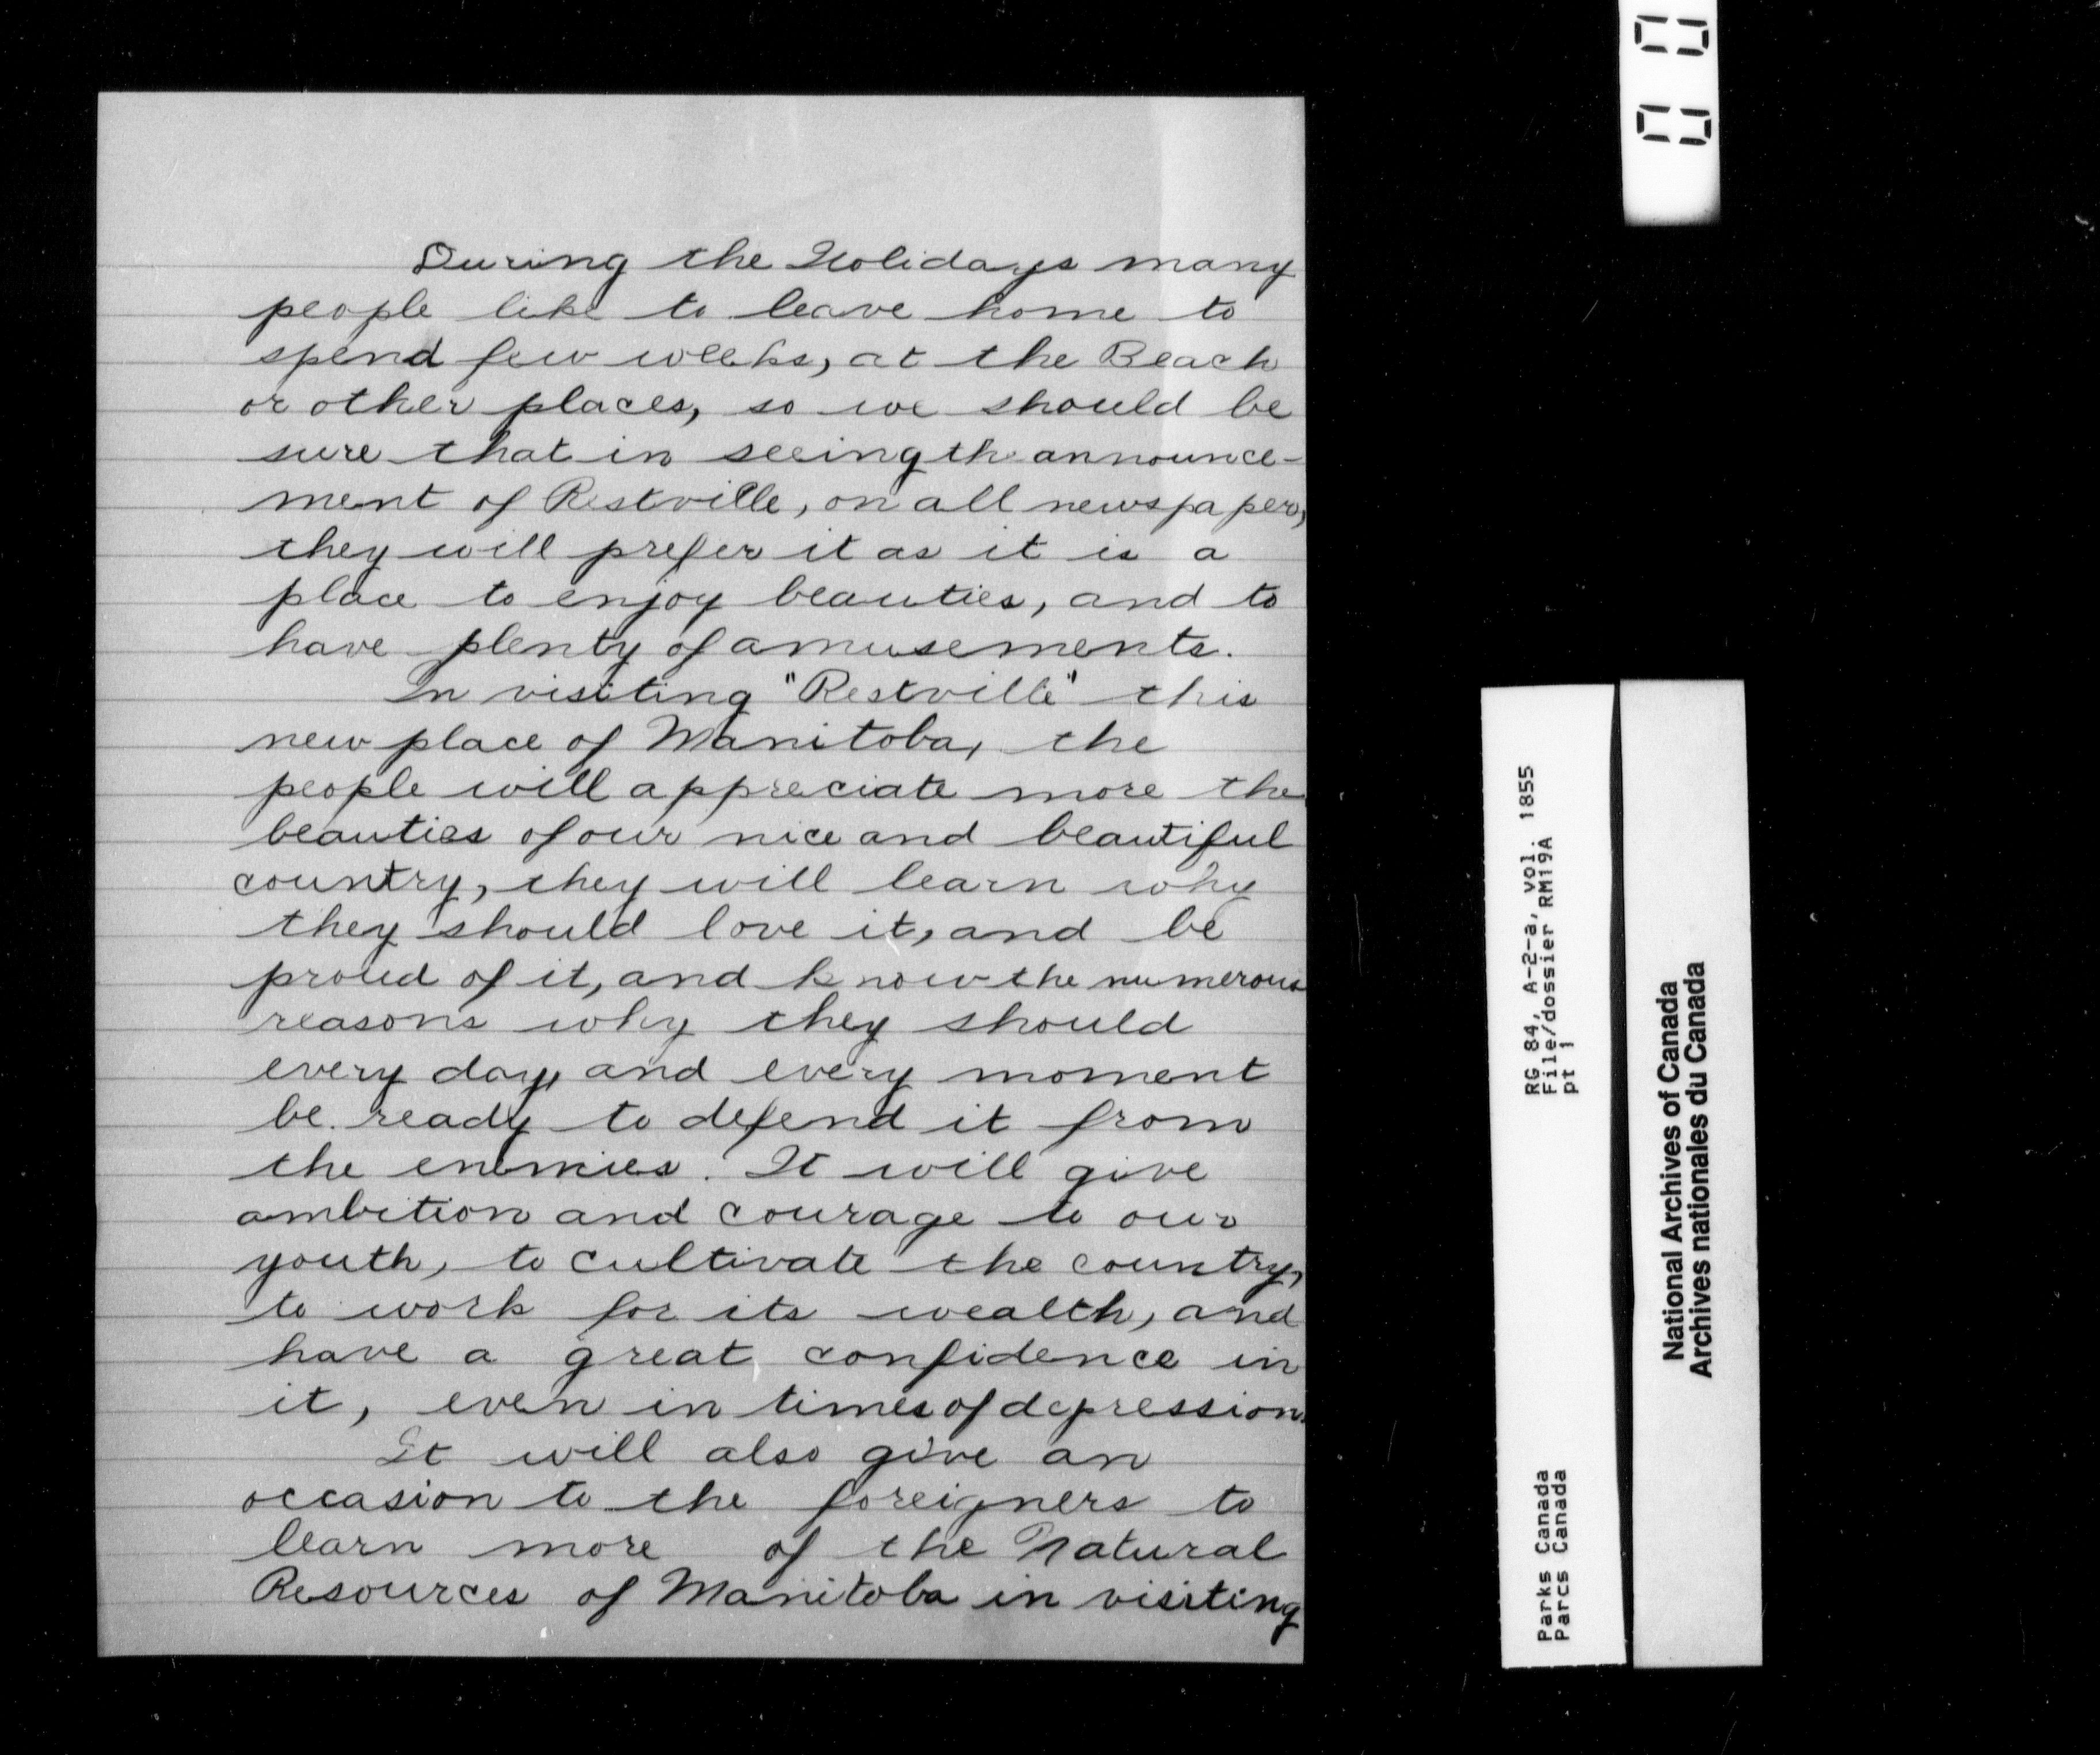 During the Holidays many
people like to leave home to
spend few weeks, at the Beach
or other places, so we should be
sure that in seeing the announce-
ment of Restville, on all newspapers,
they will prefer it as it is a
place to enjoy beauties, and to
have plenty of amusements.
In visiting "Restville" this
new place of Manitoba, the
people will appreciate more the
beauties of our nice and beautiful
country, they will learn why
they should love it, and be
proud of it, and know the numerous
reasons why they should
every day, and every moment
be ready to defend it from
the enemies. It will give
ambition and courage to our
youth, to cultivate the country,
to work for its wealth, and
have a great confidence in
it, even in times of depression.
It will also give an
occasion to the foreigners to
learn more of the Natural
Resources of Manitoba in visiting
00
RG 84, A-2-a, vol. 1855
File/dossier RM19A
pt 1
Parks Canada
Parcs Canada
National Archives of Canada
Archives nationales du Canada